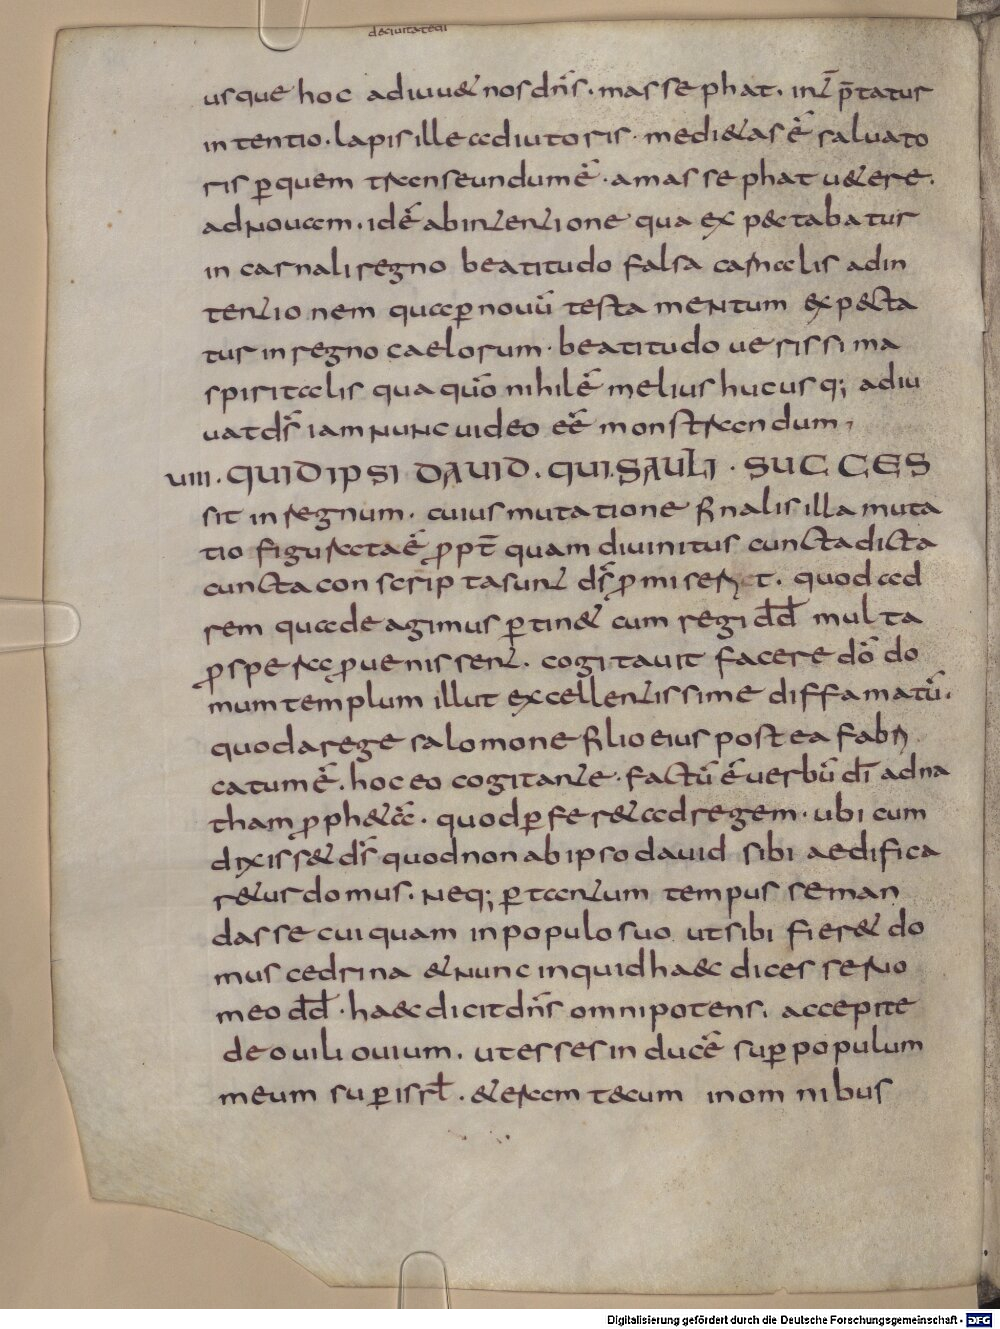 deciuitatedi
usque hoc adiuu& nos dn̄s. masse phat. int̄ p̄tatur
intentio. lapis ille adiutoris. medi&as ē saluato
ris ꝑ quem transeundum ē. a masse phat u&ere.
ad nouam. id ē ab intentione qua expectabatur
in carnali regno beatitudo falsa carnalis ad in
tentionem quae ꝑ nouū testamentum expecta
tur in regno caelorum. beatitudo uerissima
spiritalis qua quō nihil ē melius hucusq; adiu
uat dś iam nunc uideo eē monstrandum,
VIII. QUID IPSI DAVID. QUI SAULI. SUCCES
sit in regnum. cuius mutatione finalis illa muta
tio figurata ē ꝓpt̄ quam diuinitus cuncta dicta
cuncta conscripta sunt dś ꝓmiserit. quod ad
rem quae de agimus ꝑtin& cum regi dd̄ multa
ꝓspera ꝓuenissent. cogitauit facere dō do
mum templum illut excellentissime diffamatū.
quod a rege salomone filio eius postea fabri
catum ē. hoc eo cogitante. factū ē uerbū dī ad na
tham ꝓph&ā. quod ꝑfer& ad regem. ubi cum
dixiss& dś quod non ab ipso dauid sibi aedifica
r&ur domus. neq; ꝑ tantum tempus se man
dasse cuiquam in populo suo ut sibi fier& do
mus cedrina & nunc inquid haec dices seruo
meo dd̄. haec dicit dn̄s omnipotens. accepi te
de ouili ouium. ut esses in ducē suꝑ populum
meum suꝑ isrl̄. & eram tecum in omnibus
Digitalisierung gefördert durch die Deutsche Forschungsgemeinschaft - DFG